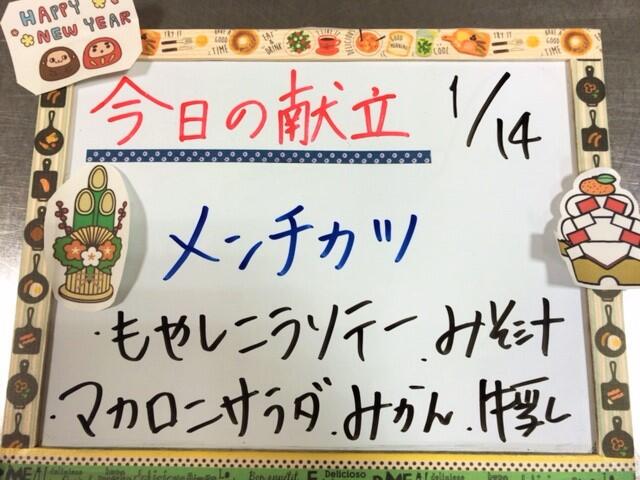 HAPPY
NEW YEAR
今日の献立 1/14
メンチカツ
・もやしニラソテー、みそ汁
・マカロニサラダ、みかん、牛乳